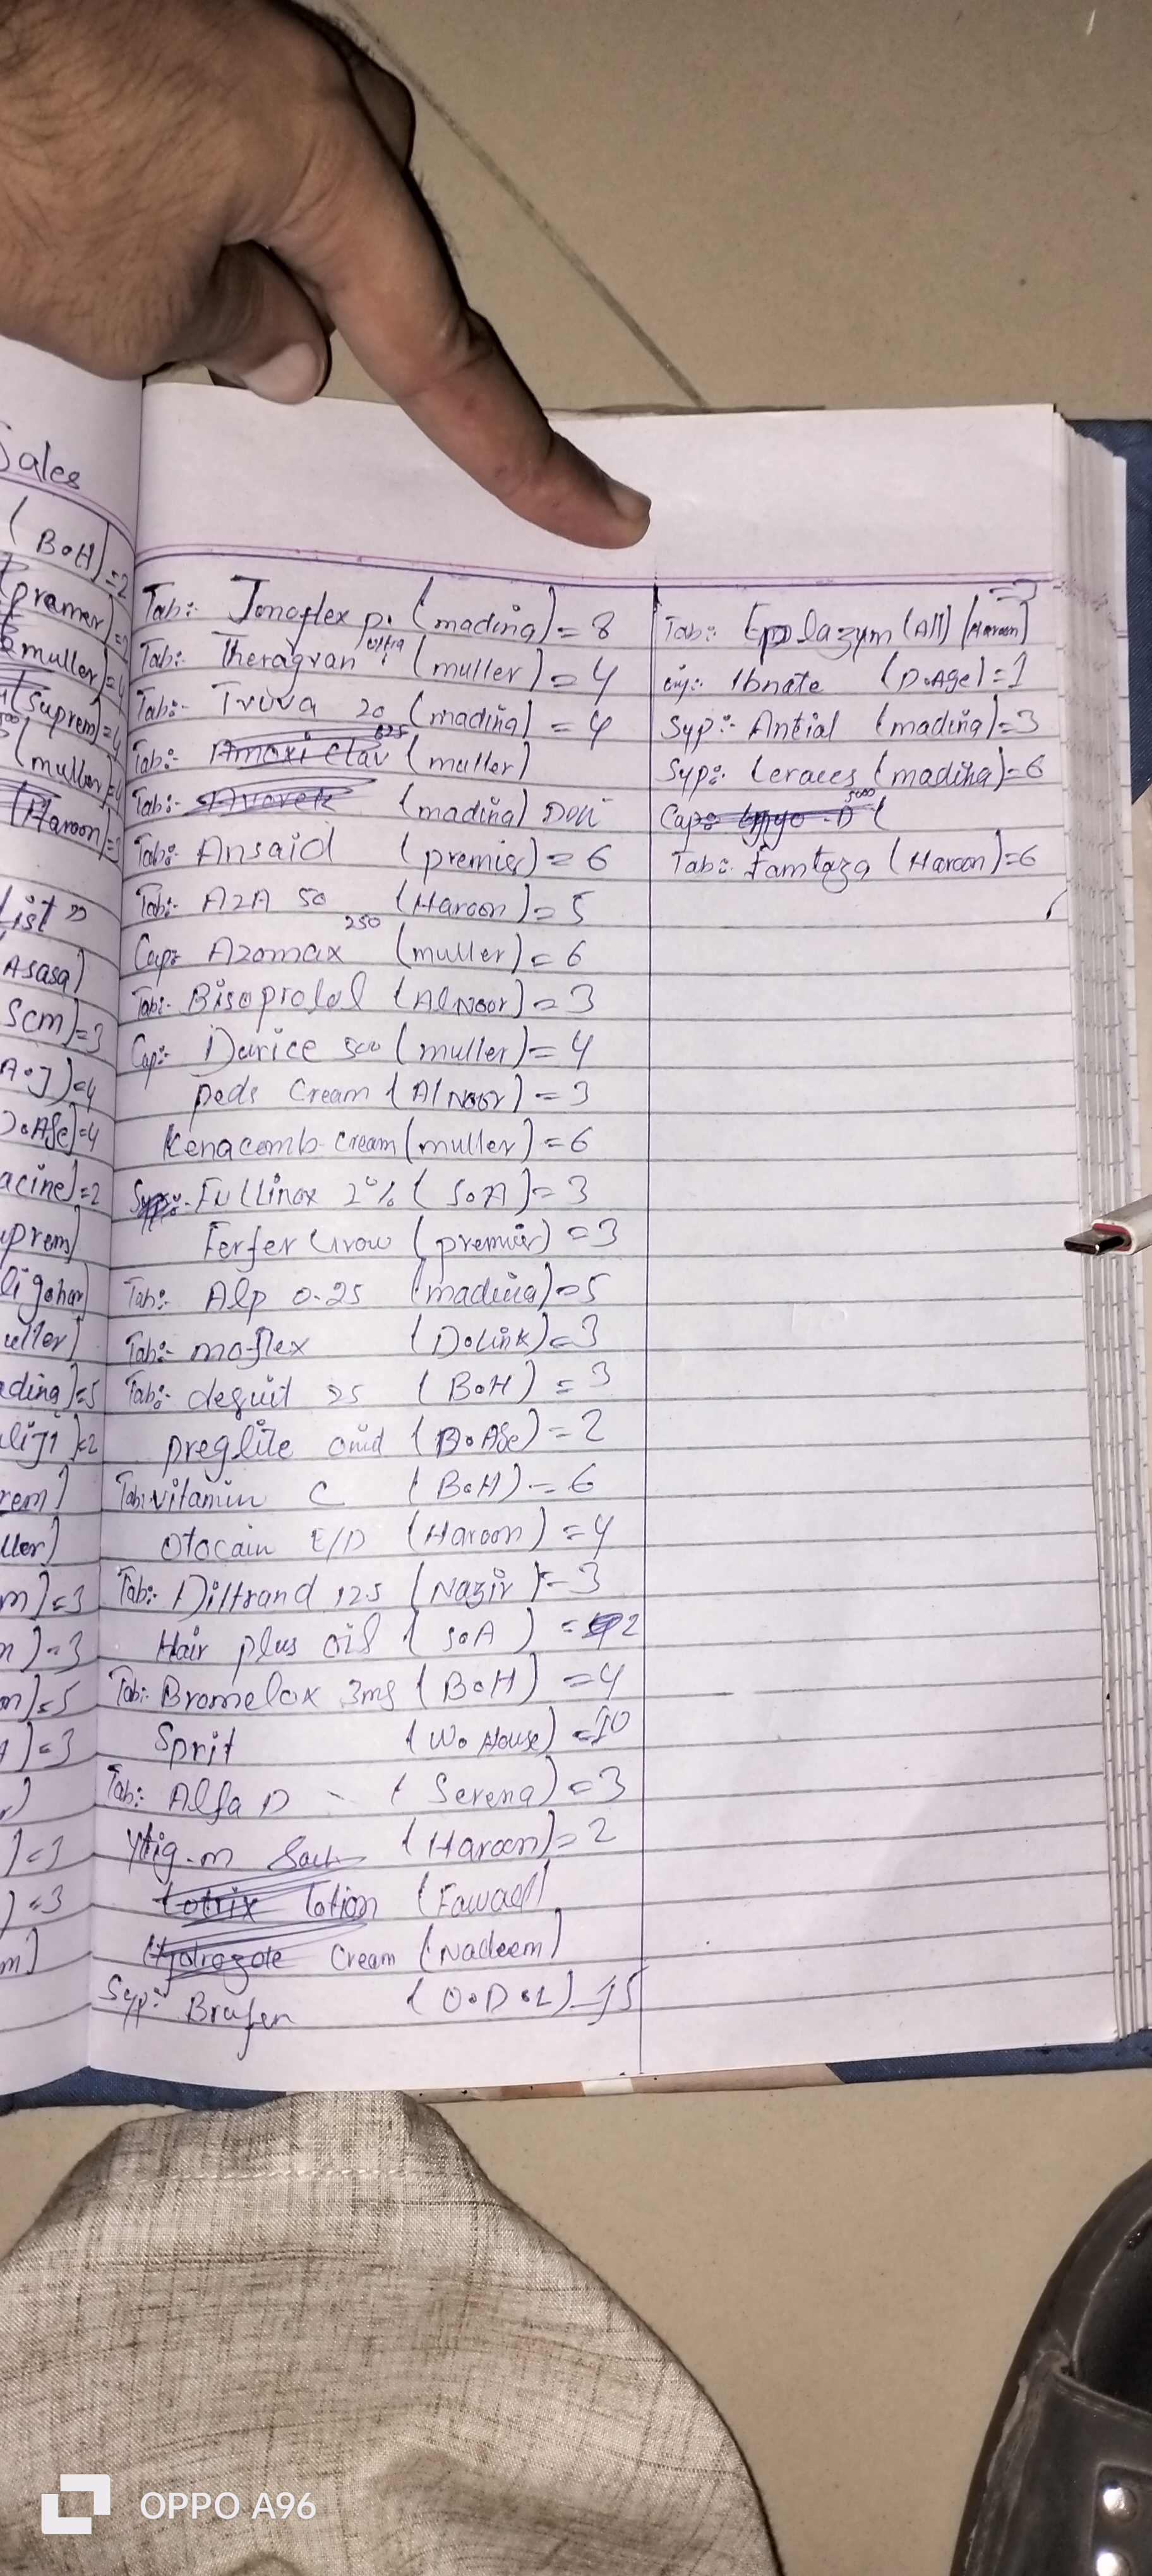 Sales
(B.H)=2
(premer)=
muller)=4
(suprem)=4
(muller)=4
(Haroon)=3
List"
Asasa)
Scm)=3
A.J)=4
D.Age)=4
acine)=2
uprem)
ligohar)
uller)
ading)=5
liji)=2
rem)
ller)
m)=3
n)=3
on)=5
)=3
)=3
)=3
m)
Tab:- Jonoflex p. (madina)=8
Tab:- Theragran ultra (muller)=4
Tab:- Truva 20 (madina)=4
Tab:- Amoxi clav 625 (muller)
Tab:- (madina) Don
Tab:- Ansaid (premier)=6
Tab:- AZA 50 (Haroon)=5
Cap: Azomax 250 (muller)=6
Tab:- Bisoprolol (AlNoor)=3
Cap:- Durice 500 (muller)=4
peds Cream (AlNoor)=3
Kenacomb cream (muller)=6
Fullinox 2% (S.A)=3
Ferfer Grow (premier)=3
Tab:- Alp 0.25 (madina)=5
Tab:- moflex (D.Link)=3
Tab:- dequit 25 (B.H)=3
preglite omd (D.Age)=2
Tab: vitamin C (B.H)=6
Otocain E/D (Haroon)=4
Tab:- Diltrand 12.5 (Nazir)=3
Hair plus oil (S.A)=2
Tab:- Bromelox 3mg (B.H)=4
Sprit (W.House)=10
Tab:- Alfa D - (Serena)=3
Ytig-m Sach (Haroon)=2
Lotrix lotion (Fawad)
Hydrozole Cream (Nadeem)
Syp:- Brufen (O.D.L)=15
Tab:- Epplazym (All) (Haroon)
inj:- Ibnate (D.Age)=1
Syp:- Antial (madina)=3
Syp:- Leraces (madina)=6
Cap:- -D 5000 (
Tab:- Famtaza (Haroon)=6
OPPO A96